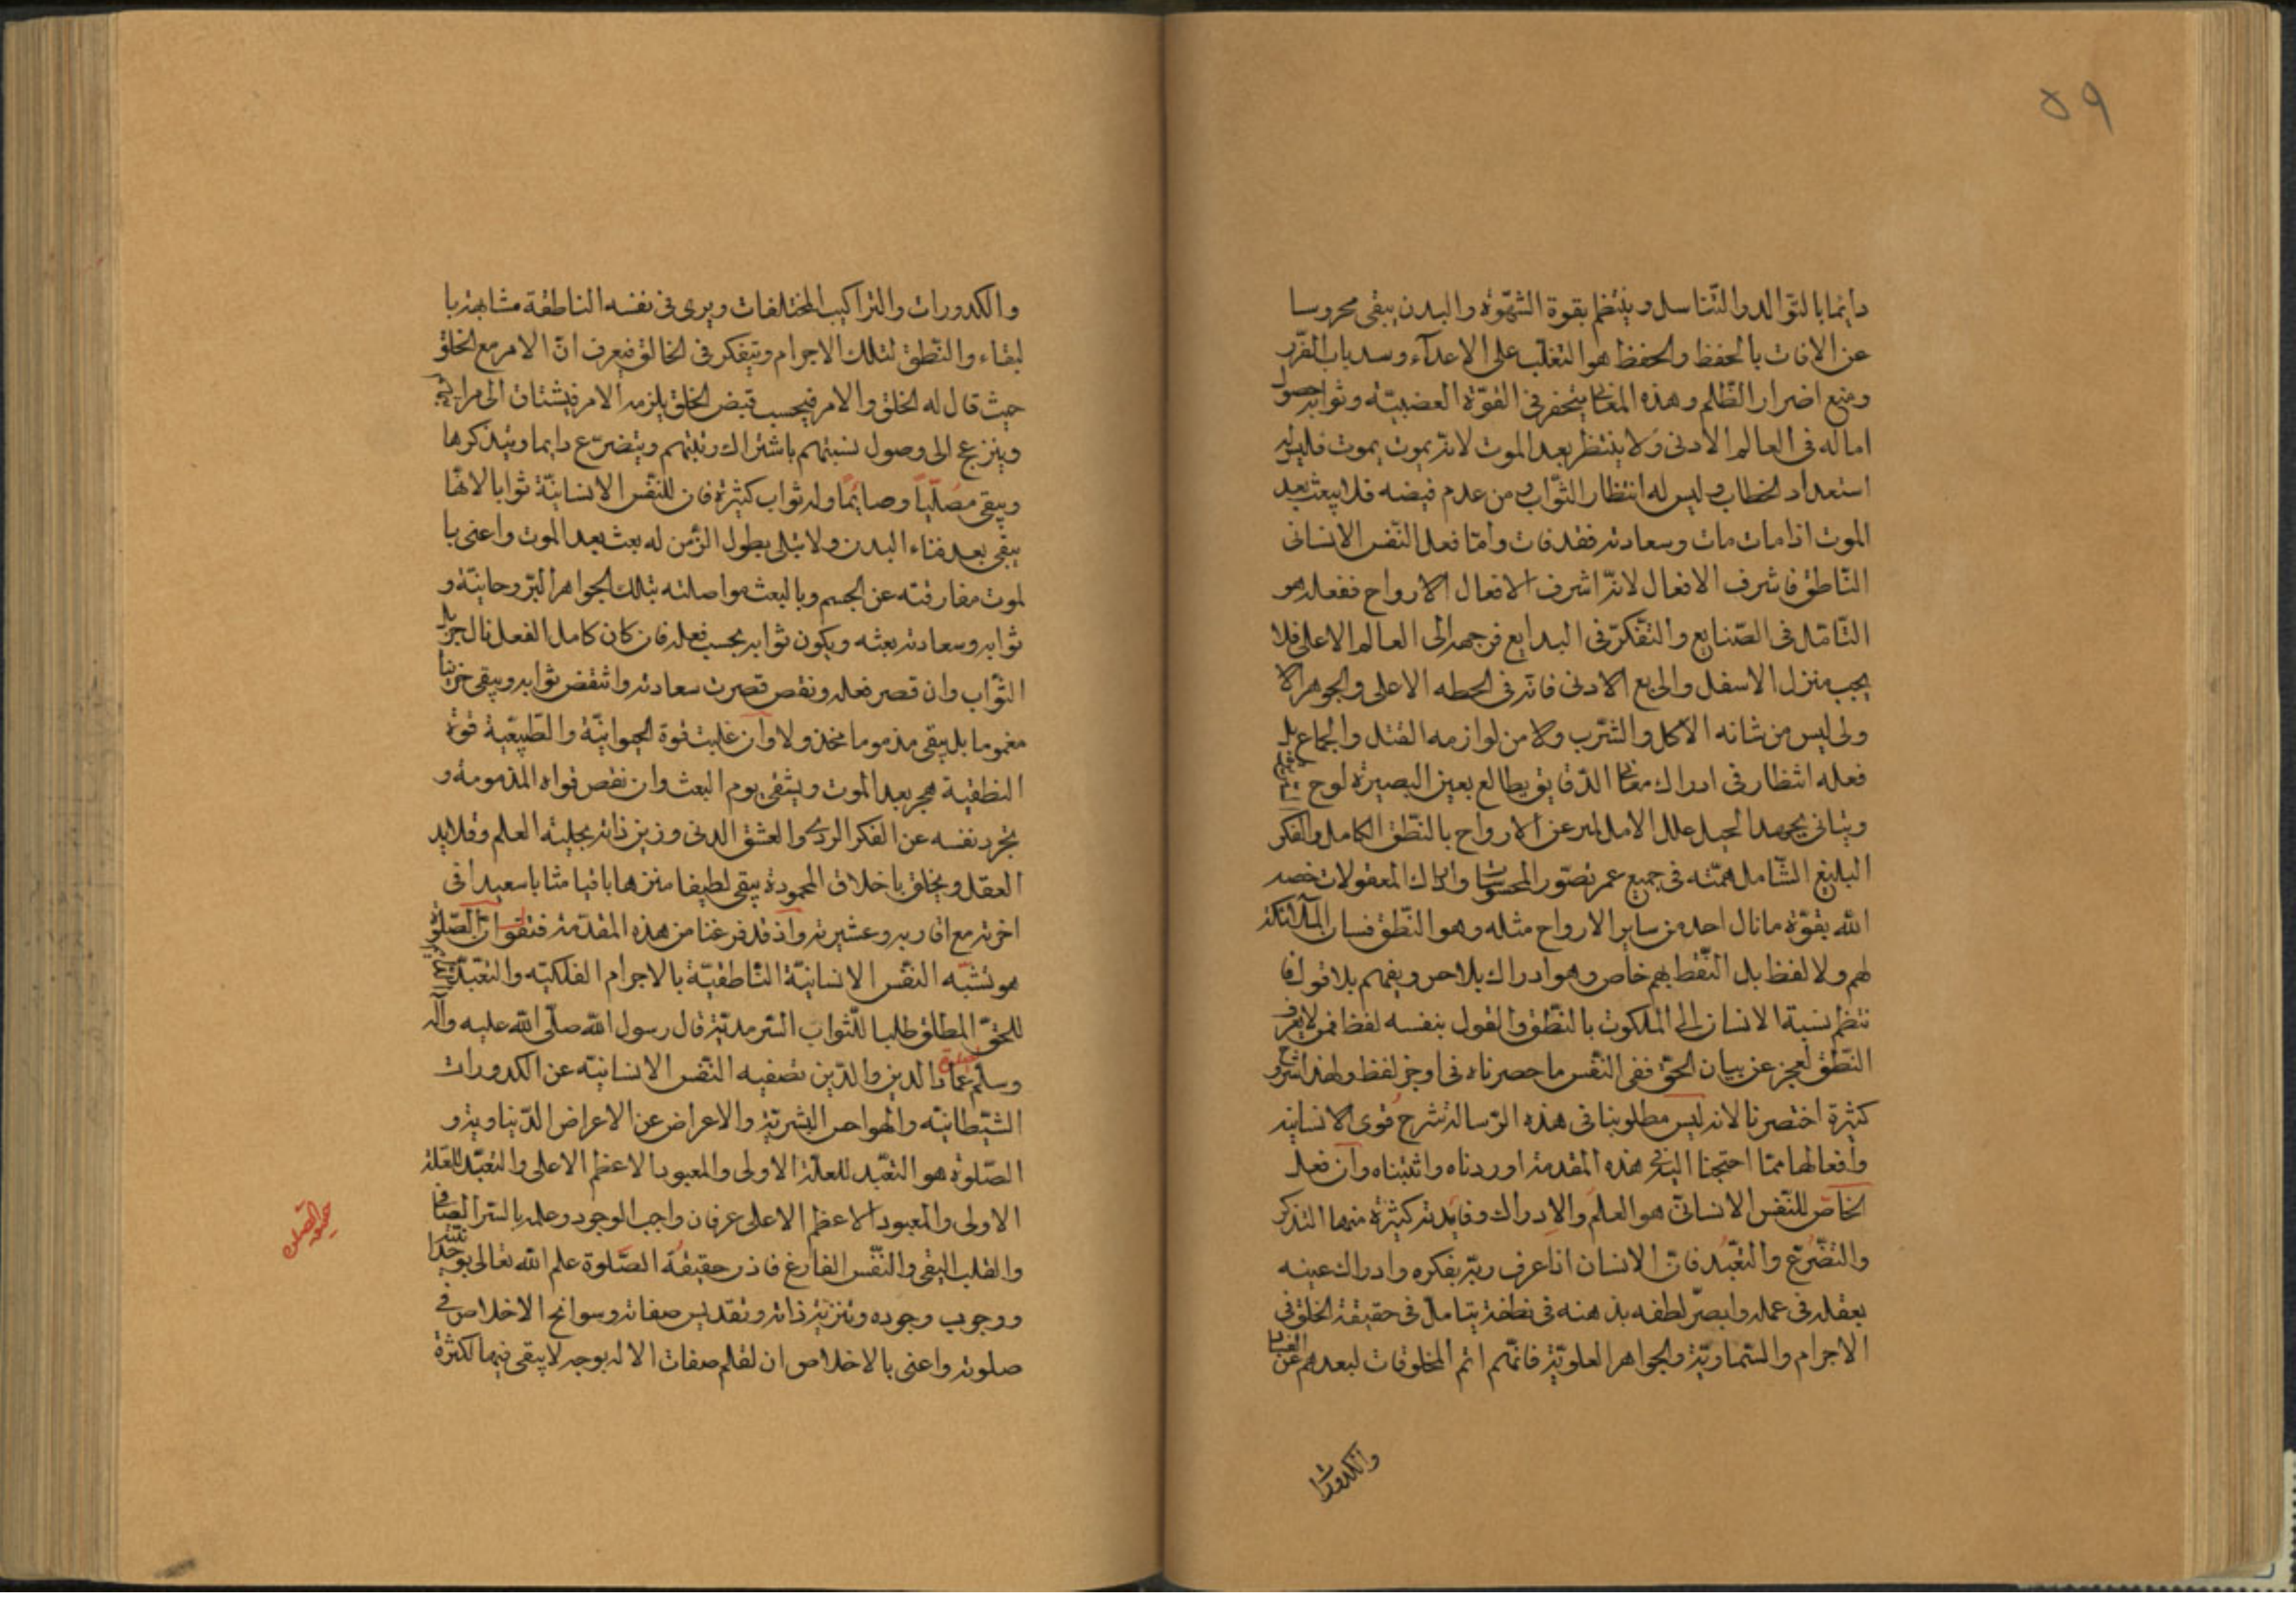 ٥٩
دايما بالتوالد والتناسل وينتظم بقوة الشهوة والبدن يبقى محروسا
عن الافات بالحفظ والحفظ هو التغلب على الاعداء وسد باب الضرر
ومنع اضرار الظلم وهذه المعانى ينحصر فى القوة الغضبية وثوابه حصول
اماله فى العالم الادنى ولا ينتظر بعد الموت لانه يموت بموت فليس له
استعداد الخطاب وليس له انتظار الثواب ومن عدم فيضه فلا يبعث بعد
الموت اذا مات مات وسعادته فقد فات واما فعل النفس الانسانى
الناطق فاشرف الافعال لانه اشرف الافعال الارواح ففعله هو
التامل فى الصنايع والتفكر فى البدايع فوجهه الى العالم الاعلى فلا
يحب منزل الاسفل والى بع الادنى فانه فى الحطه الاعلى والجوهر الا
ولى ليس من شانه الاكل والشرب ولا من لوازمه القتل والجماع بل
فعله انتظار فى ادراك معانى الدقايق يطالع بعين البصيرة لوح
ويتانى بجهد الحيل علل الامل الارواح بالنطق الكامل والفكر
البليغ الشامل همته فى جميع عمره تصور المحسوسات وادراك المعقولات خصه
الله بقوة ما نال احد من ساير الارواح مثله وهو النطق لسان الملائكة
لهم ولا لفظ بل النطق بهم خاص وهو ادراك بلا حس ويفهم بلا قول فا
نتظم نسبة الانسان الى الملكوت بالنطق والقول بنفسه لفظا فمن لا يعرف
النطق لعجز عن بيان الحق ففى النفس ما حصرناه فى اوجز لفظ ولهذا شرح
كثيرة اختصرنا لانه ليس مطلوبنا فى هذه الرسالة شرح قوى الانسانيه
وافعالها مما احتجنا اليه فى هذه المقدمة اوردناه واثبتناه وان فعل
الخاص للنفس الانسانى هو العلم والادراك وفايدته كثيرة منها التذكر
والتضرع والتعبد فان الانسان اذا عرف ربه بفكره وادراك عينه
بعقله فى عمله وابصر لطفه بذهنه فى نطقه يتامل فى حقيقة الخلق فى
الاجرام والسماوية والجواهر العلوية فانهم اتم المخلوقات لبعدهم عن الفساد
والكدورات
والكدورات والتراكيب المختلفات ويرى فى نفسه الناطقة مشابهة با
لبقاء والنطق لتلك الاجرام ويتفكر فى الخالق فيعرف ان الامر مع الخلق
حيث قال له الخلق والامر فيحسب قبض الخلق يلزمه الامر فيشتاق الى مراتبهم
وينزعج الى وصول نسبتهم باشتراك رتبتهم ويتضرع دايما ويتذكرها
ويبقى مصليا وصايما وله ثواب كثيرة فان للنفس الانسانية ثوابا لانها
يبقى بعد فناء البدن ولا يبلى بطول الزمن له بعث بعد الموت واعنى با
لموت مفارقته عن الجسم وبالبعث مواصلته بتلك الجواهر الروحانية و
ثوابه وسعادته بعثه ويكون ثوابه بحسب فعله فان كان كامل الفعل نال جزيل
الثواب وان قصر فعله ونقص قصرت سعادته وانتقض ثوابه ويبقى حزينا
مغموما بل يبقى مذموما مخذولا وان غلبت قوة الحيوانية والطبيعية قوة
النطقية يتحير بعد الموت ويشقى يوم البعث وان نقص قواه المذمومة و
تجرد نفسه عن الفكر الردى والعشق الدنى وزين ذاته بحلية العلم وقلايد
العقل ويخلق باخلاق المحمودة يبقى لطيفا منزها باقيا مثابا سعيدا فى
اخرته مع اقاربه وعشيرته واذ قد فرغنا من هذه المقدمة فنقول ان الصلوة
هو تشبه النفس الانسانية الناطقية بالاجرام الفلكية والتعبد
للحق المطلق طلبا للثواب السرمدية قال رسول الله صلى الله عليه واله
وسلم الصلوة عماد الدين والدين تصفية النفس الانسانية عن الكدورات
الشيطانية والهواجس البشرية والاعراض عن الاعراض الدنياوية و
الصلوة هو التعبد للعلة الاولى والمعبود الاعظم الاعلى والتعبد للعلة
الاولى والمعبود الاعظم الاعلى عرفان واجب الوجود وعلمه بالسر الصافى
والقلب النقى والنفس الفارغ فاذن حقيقة الصلوة علم الله تعالى بوحدانيته
ووجوب وجوده وتنزيه ذاته وتقديس صفاته وسوانح الاخلاص فى
صلوته واعنى بالاخلاص ان تعلم صفات الاله بوجه لا يبقى فيها لكثرة
حقيقة الصلوة